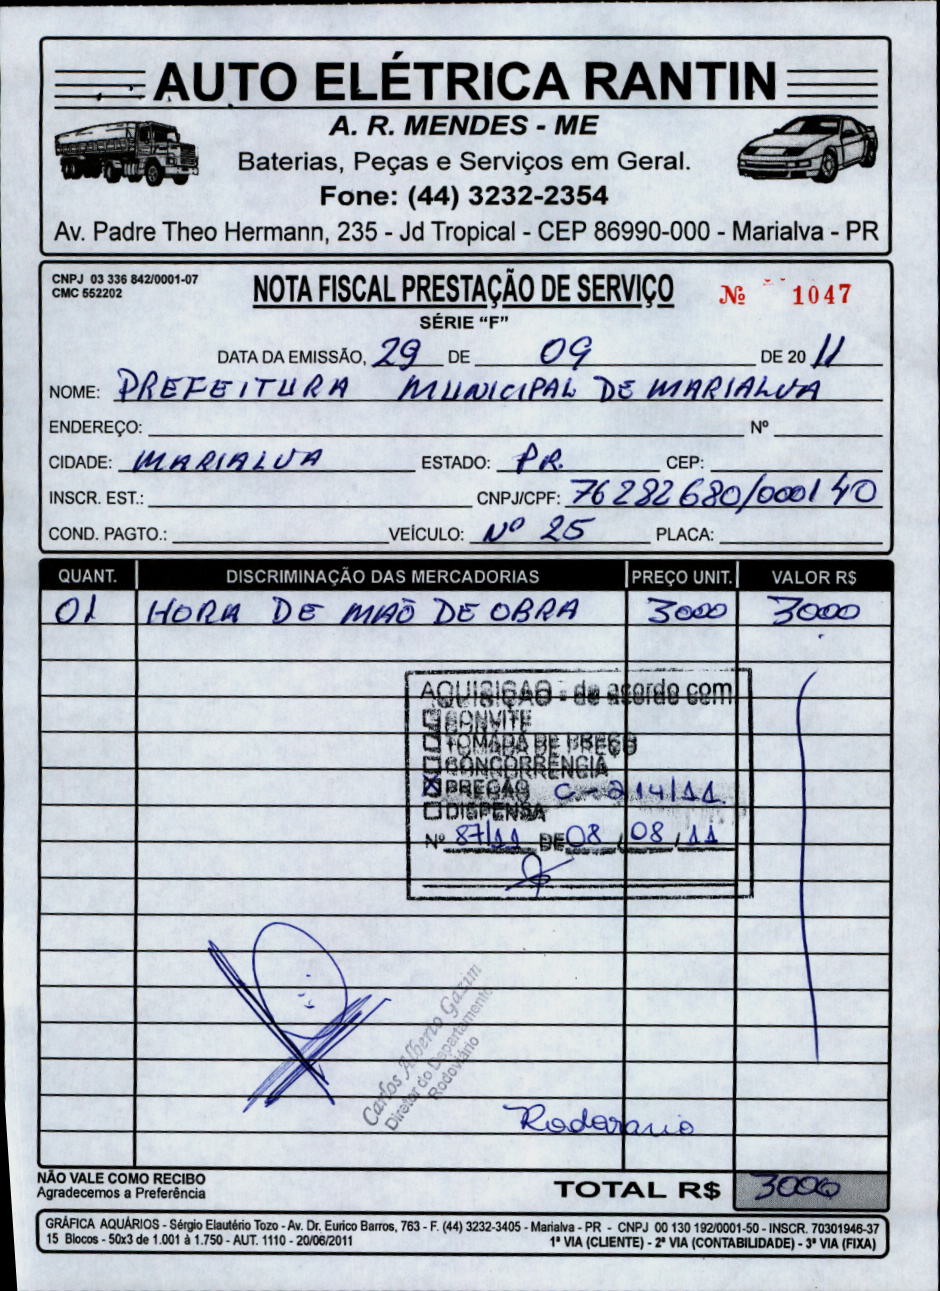 AUTO ELÉTRICA RANTIN
A. R. MENDES - ME
Baterias, Peças e Serviços em Geral.
Fone: (44) 3232-2354
Av. Padre Theo Hermann, 235 - Jd Tropical - CEP 86990-000 - Marialva - PR
CNPJ 03 336 842/0001-07
CMC 552202
NOTA FISCAL PRESTAÇÃO DE SERVIÇO
Nº 1047
SÉRIE "F"
DATA DA EMISSÃO, 29 DE 09 DE 20 11
NOME: PREFEITURA MUNICIPAL DE MARIALVA
ENDEREÇO: Nº
CIDADE: MARIALVA ESTADO: PR. CEP:
INSCR. EST.: CNPJ/CPF: 76282680/0001 40
COND. PAGTO.: VEÍCULO: Nº 25 PLACA:
QUANT. DISCRIMINAÇÃO DAS MERCADORIAS PREÇO UNIT. VALOR R$
01 HORA DE MÃO DE OBRA 3000 3000
AQUISIÇÃO - de acordo com
CONVITE
TOMADA DE PREÇO
CONCORRÊNCIA
PREGÃO C-214/11
DISPENSA
Nº 87/11 DE 08 / 08 / 11
Carlos Alberto Gazim
Diretor do Departamento
Rodoviário
TOTAL R$ 3000
NÃO VALE COMO RECIBO
Agradecemos a Preferência
GRÁFICA AQUÁRIOS - Sérgio Elautério Tozo - Av. Dr. Eurico Barros, 763 - F. (44) 3232-3405 - Marialva - PR - CNPJ 00 130 192/0001-50 - INSCR. 70301946-37
15 Blocos - 50x3 de 1.001 à 1.750 - AUT. 1110 - 20/06/2011 1ª VIA (CLIENTE) - 2ª VIA (CONTABILIDADE) - 3ª VIA (FIXA)